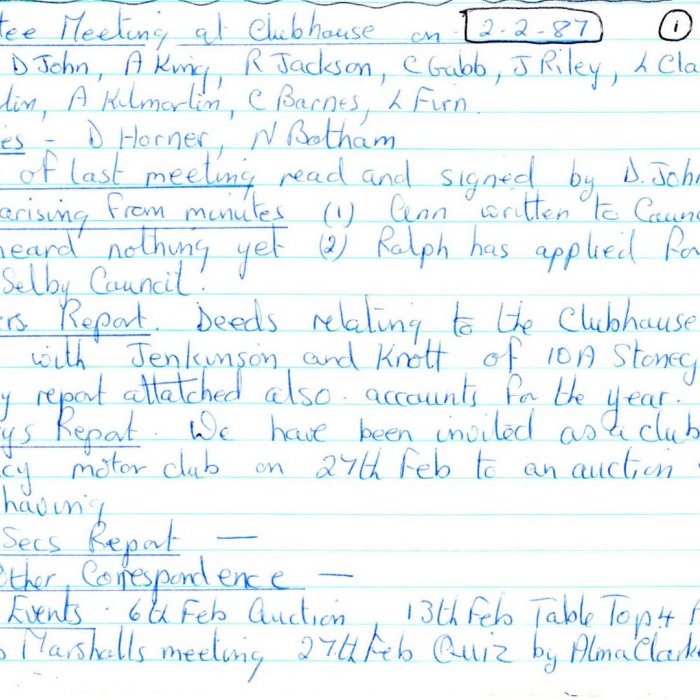 tee Meeting at Clubhouse on 2-2-87 1
D John, A King, R Jackson, C Gabb, J Riley, L Cla
lin, A Kilmartin, C Barnes, L Firn.
es - D Horner, N Botham
of last meeting read and signed by D. John
arising from minutes (1) Ann written to Counc
heard nothing yet (2) Ralph has applied for
Selby Council.
ers Report. Deeds relating to the Clubhouse
with Jenkinson and Knott of 10A Stoney
y report attatched also. accounts for the year.
ys Report. We have been invited as a club
cy motor club on 27th Feb to an auction
having
Secs Report —
Other Correspondence —
Events. 6th Feb Auction, 13th Feb Table Top 4
Marshalls meeting 27th Feb Quiz by Alma Clarke